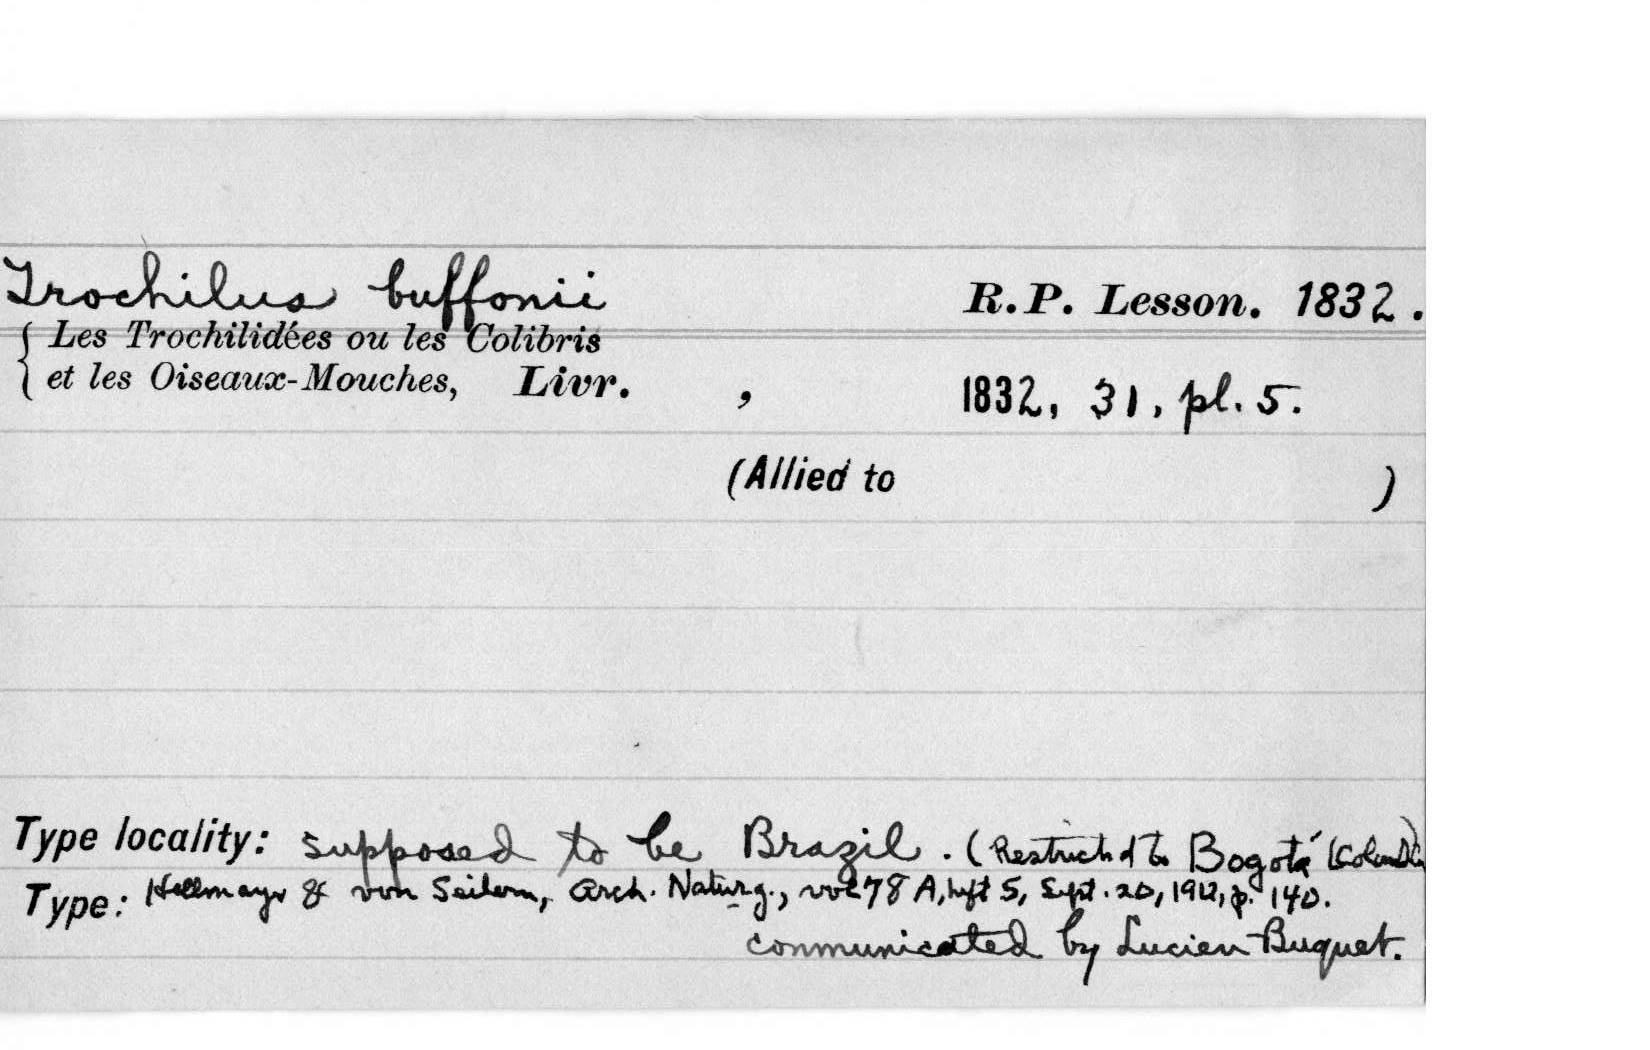 Trochilus buffonii R.P. Lesson. 1832.
{ Les Trochilidées ou les Colibris
et les Oiseaux-Mouches, Livr. , 1832, 31, pl. 5.
(Allied to )
Type locality: supposed to be Brazil. (Restricted to Bogotá (Colombia)
Type: Hellmayr & von Seilern, Arch. Naturg., vol 78 A, heft 5, Sept. 20, 1912, p. 140.
communicated by Lucien Buquet.